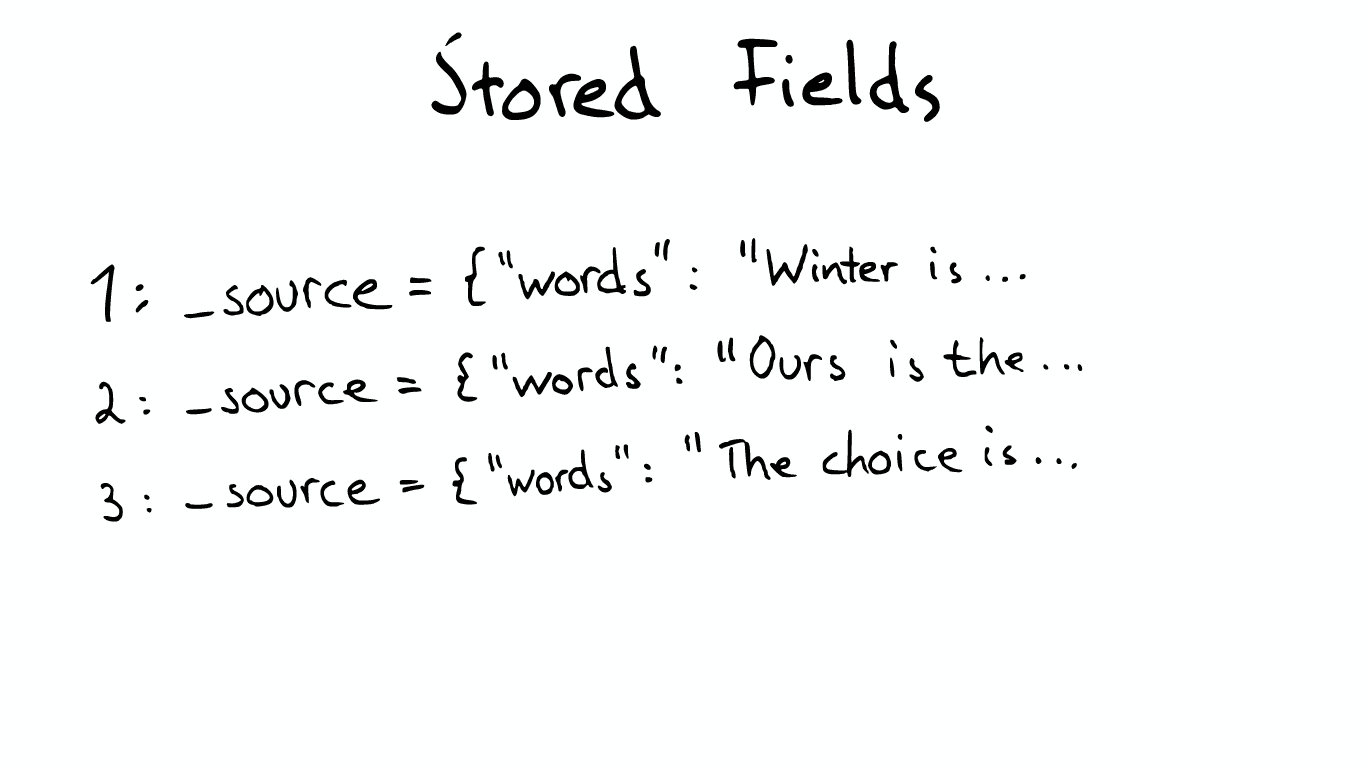 Stored Fields
1: _source = {"words": "Winter is...
2: _source = {"words": "Ours is the...
3: _source = {"words": "The choice is...